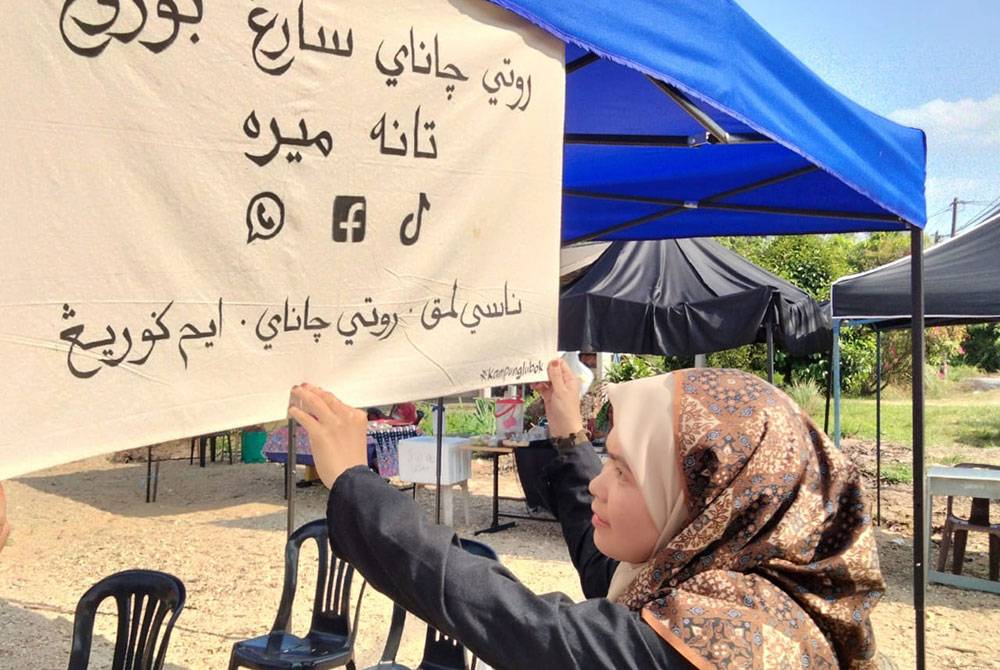 روتي چاناي سارڠ بوروڠ
تانه ميره
ناسي لمق . روتي چاناي . ايم ݢوريڠ
#kampunglubok